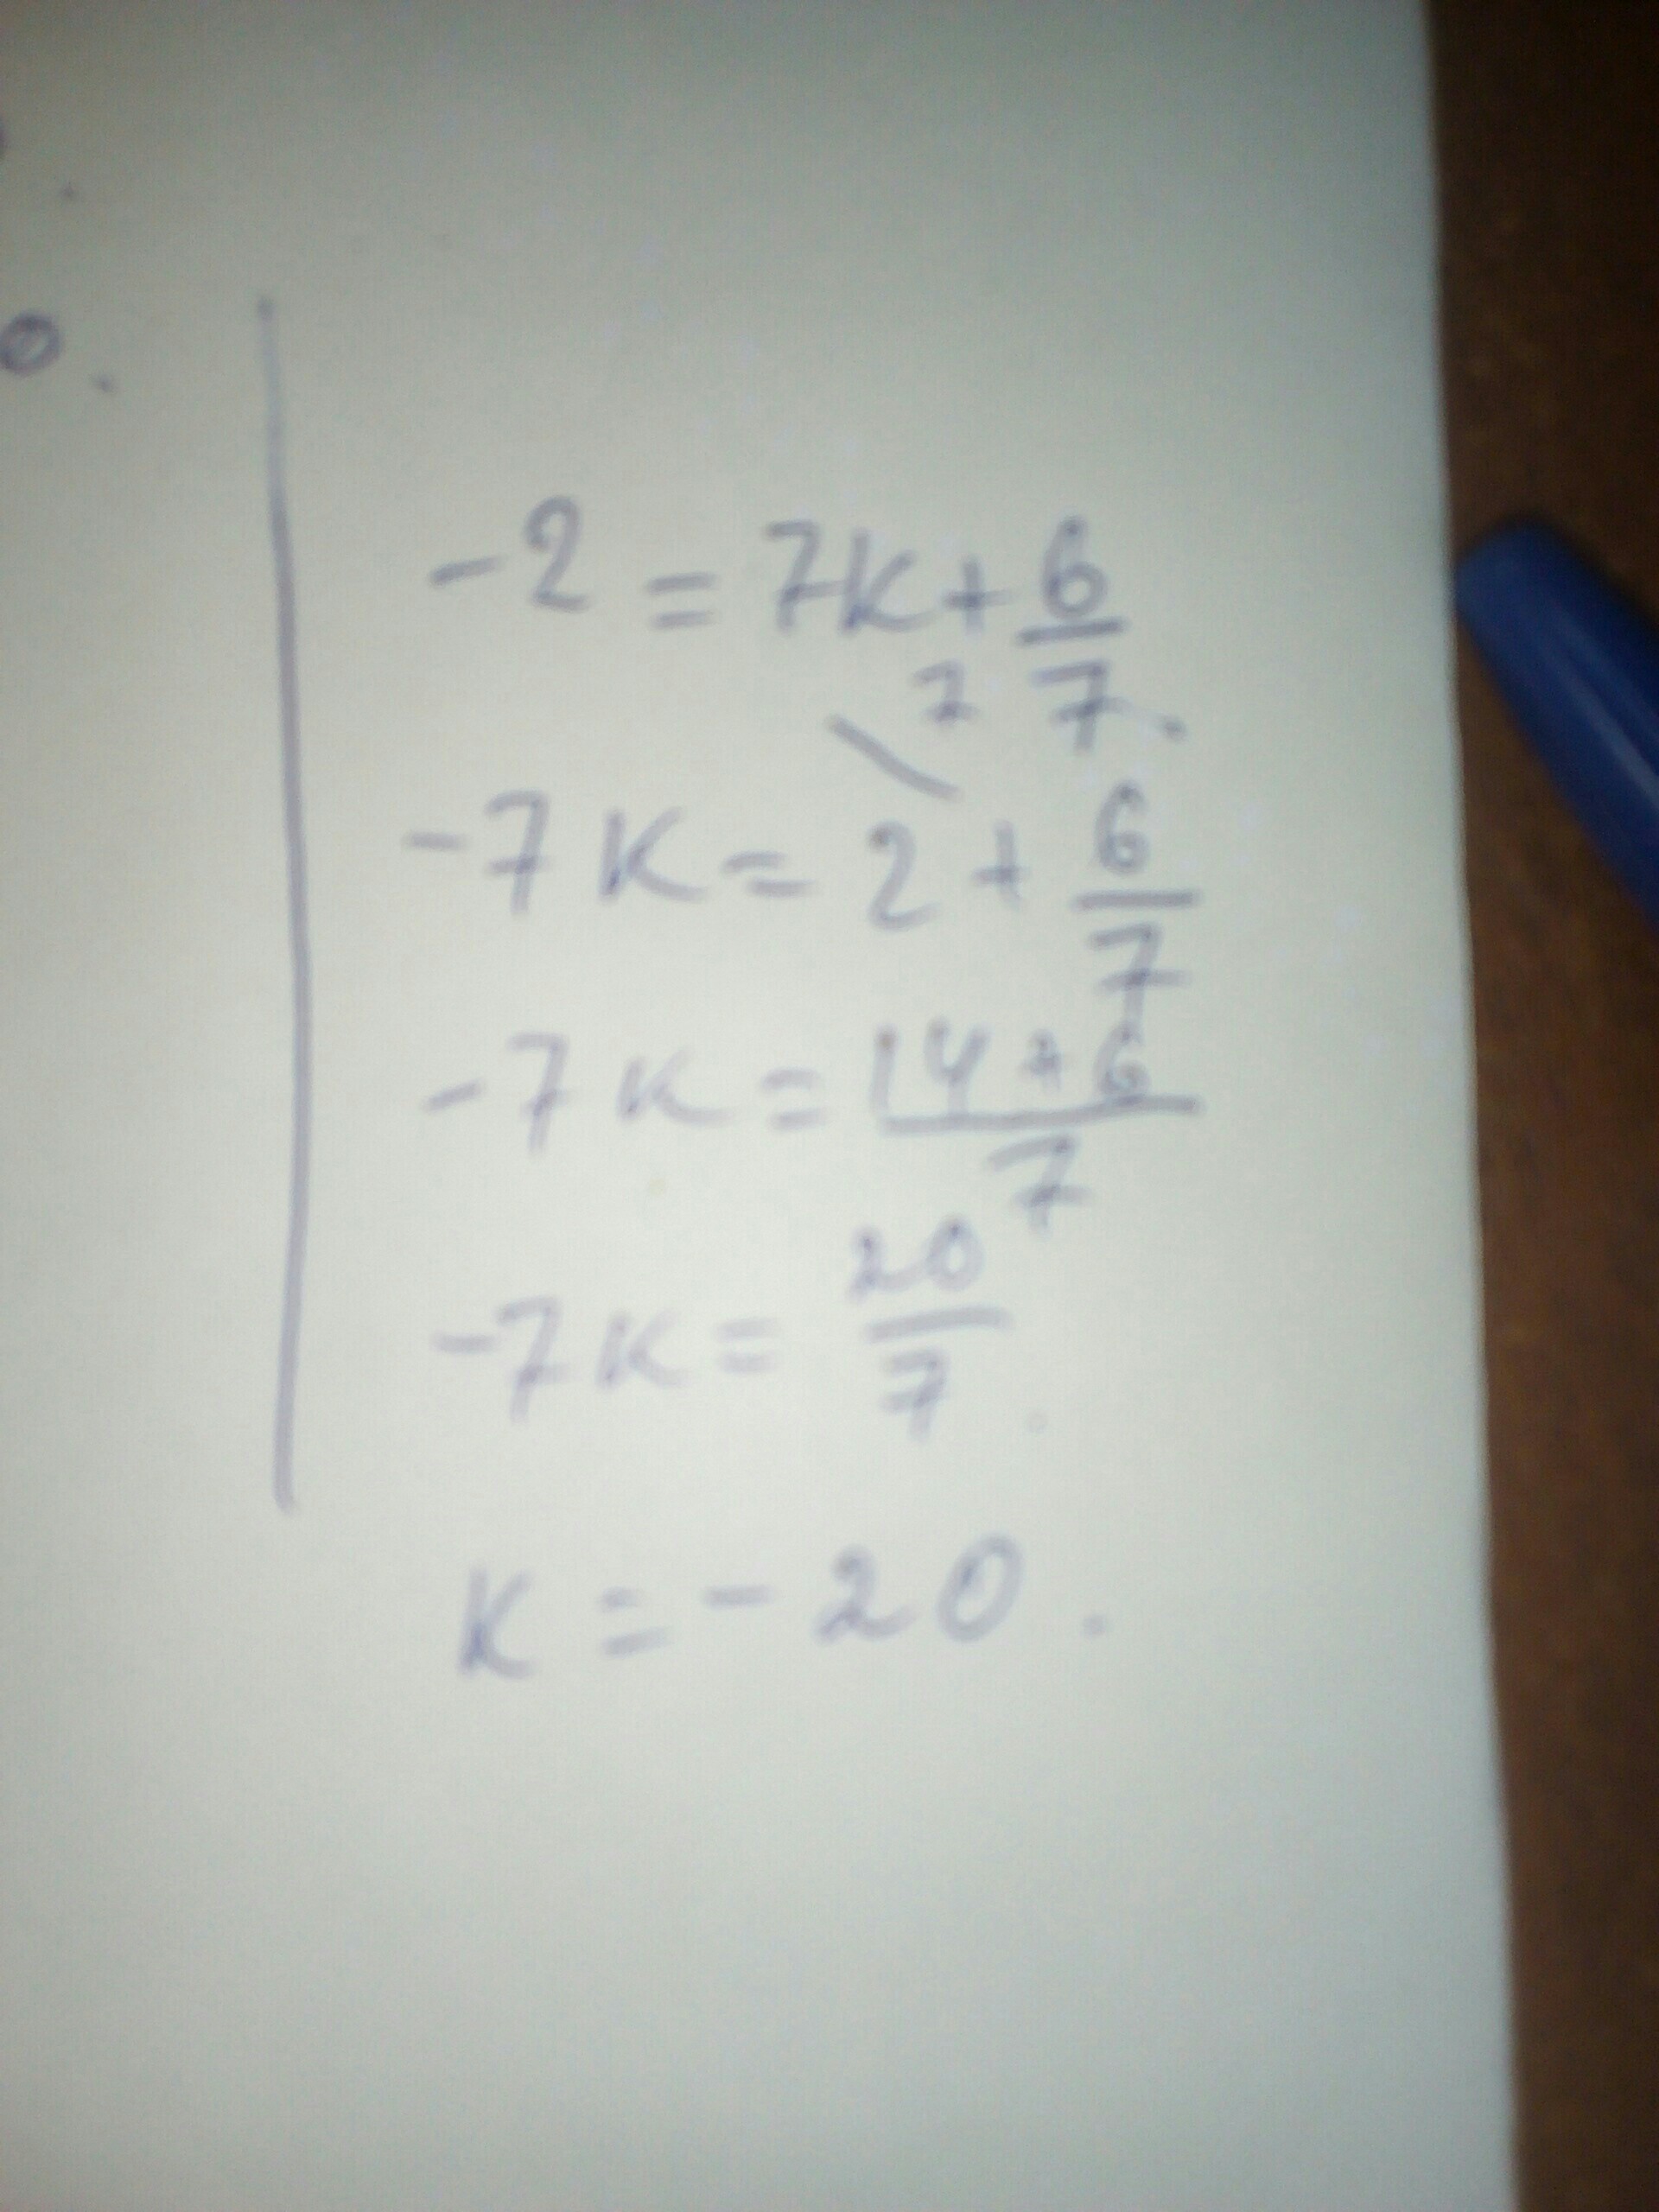 0.
-2 = 7K + 6/7.
7
-7K = 2 + 6/7
-7K = 14+6/7
-7K = 20/7
K = -20.